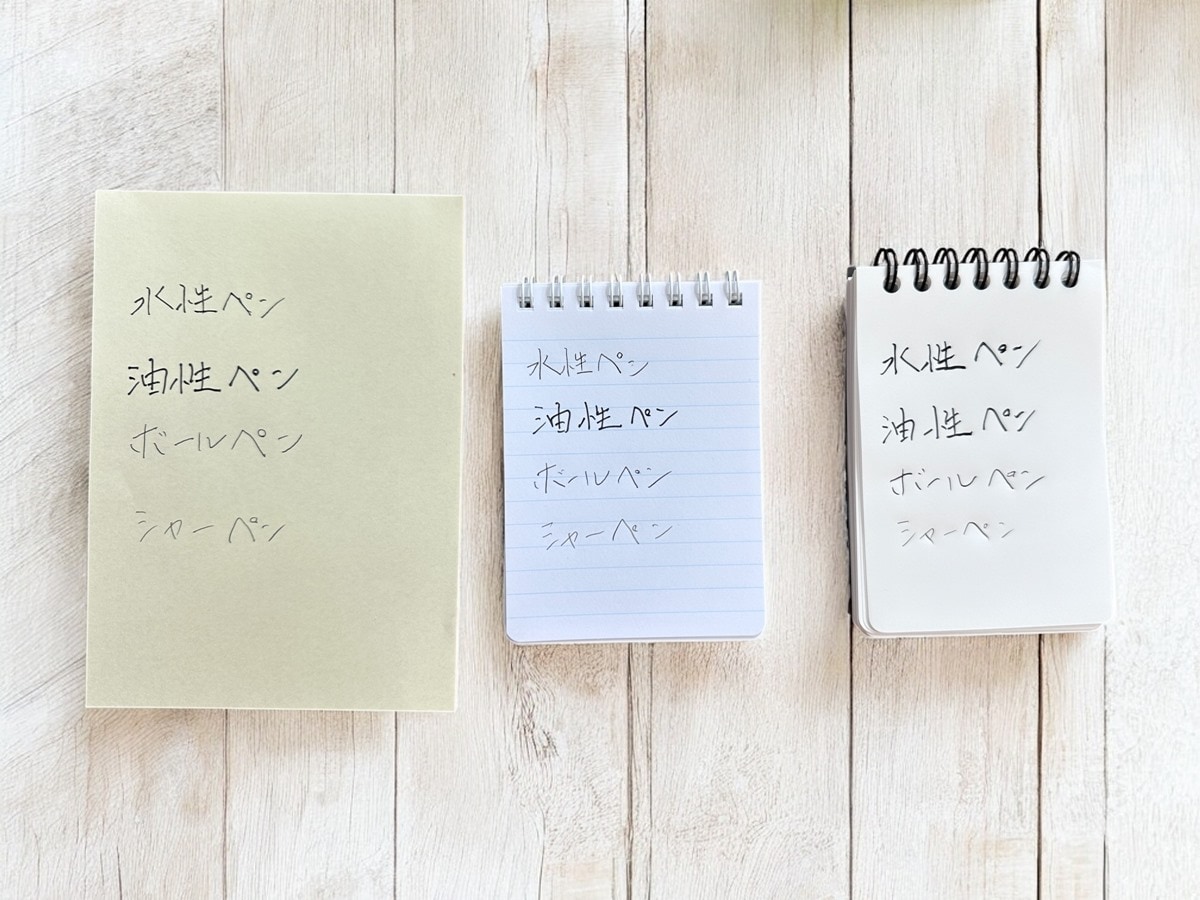 水性ペン
油性ペン
ボールペン
シャーペン
水性ペン
油性ペン
ボールペン
シャーペン
水性ペン
油性ペン
ボールペン
シャーペン